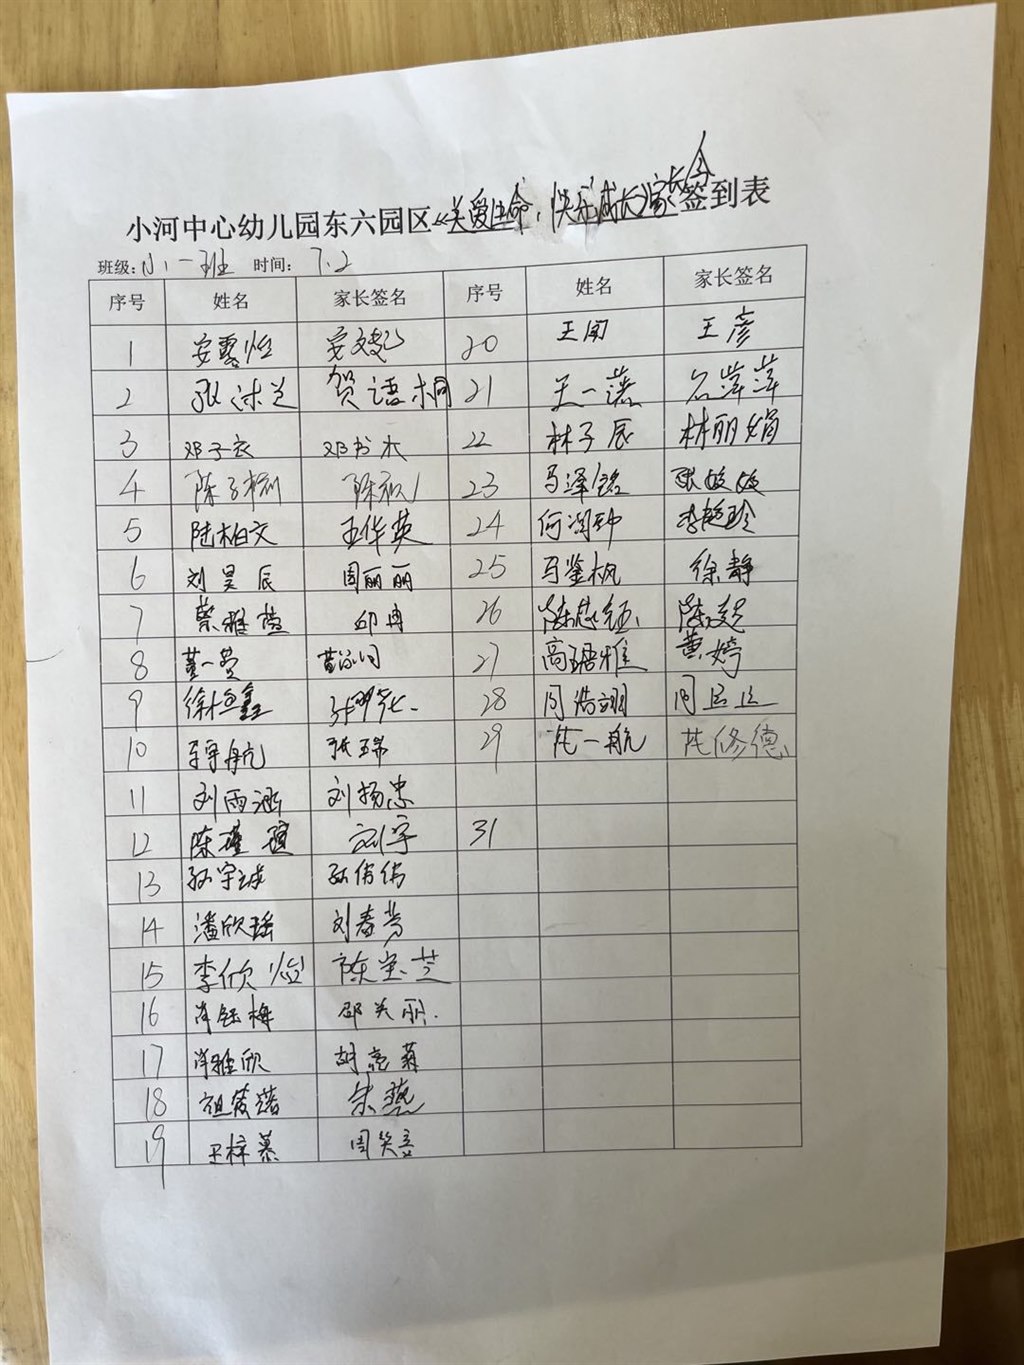 小河中心幼儿园东六园区《关爱生命，快乐成长》家长会签到表
班级：小一班 时间：7.2
序号 姓名 家长签名 序号 姓名 家长签名
1 安露怡 20 王闰 王彦
2 张沐兰 贺语桐 21 王一诺 石萍萍
3 邓子衣 邓书木 22 林子辰 林丽娟
4 陈子 23 马泽铭 张姣姣
5 陆柏文 王华英 24 何润 李艳玲
6 刘昊辰 周丽丽 25 马鉴枫 徐静
7 蔡雅萱 邱冉 26 陈
8 董一曼 27 高珺雅 黄婷
9 徐梓鑫 28 周浩翔
10 宇航 张瑞 29 一航 修德
11 刘雨涵 刘扬忠
12 陈瑾瑄 刘宇 31
13 孙宇 孙倩倩
14 潘欣瑶 刘春芳
15 李欣怡 陈宝芝
16 肖钰梅 邵关丽
17 肖雅欣 胡亮
18 朱艳
19 王梓慕 周笑